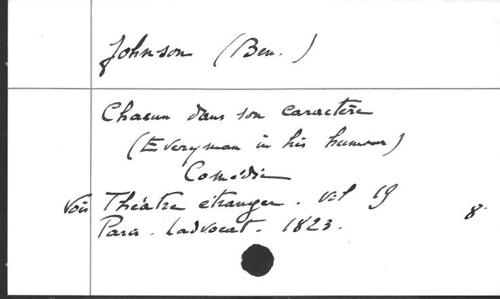 Johnson (Ben.)
Chacun dans son caractère
(Everyman in his humour)
Comédie
Voir Théâtre étranger. Vol 19
8º
Paris. Ladvocat. 1823.